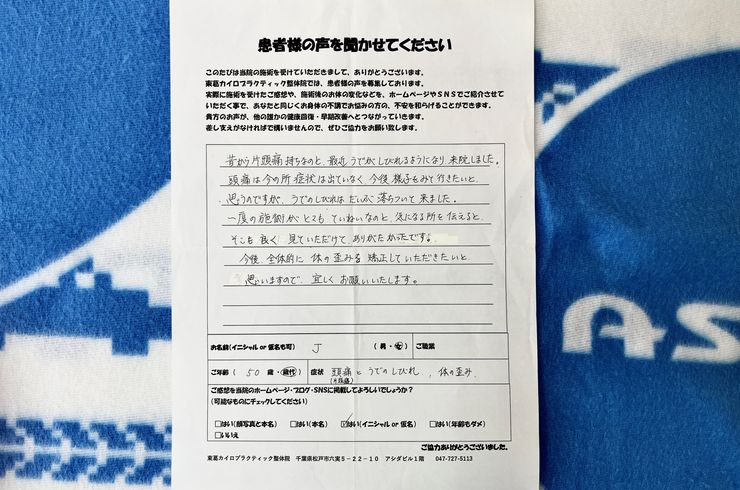 患者様の声を聞かせてください
このたびは当院の施術を受けていただきまして、ありがとうございます。
東葛カイロプラクティック整体院では、患者様の声を募集しております。
実際に施術を受けたご感想や、施術後のお体の変化などを、ホームページやSNSでご紹介させて
いただく事で、あなたと同じくお身体の不調でお悩みの方の、不安を和らげることができます。
貴方のお声が、他の誰かの健康回復・早期改善へとつながっていきます。
差し支えがなければで構いませんので、ぜひご協力をお願い致します。
昔から片頭痛持ちなのと、最近うでがしびれるようになり来院しました。
頭痛は今の所症状は出ていなく今後様子をみて行きたいと
思うのですが、うでのしびれはだいぶ落ちついて来ました。
一度の施術がとてもていねいなのと、気になる所を伝えると、
そこも良く見ていただけてありがたかったです。
今後、全体的に体の歪みを矯正していただきたいと
思いますので、宜しくお願いいたします。
お名前(イニシャル or 仮名も可) J (男・女) ご職業
ご年齢( 50 歳・歳代) 症状 頭痛とうでのしびれ、体の歪み
(片頭痛)
ご感想を当院のホームページ・ブログ・SNSに掲載してよろしいでしょうか?
(可能なものにチェックしてください)
□はい(顔写真と本名) □はい(本名) ☑はい(イニシャル or 仮名) □はい(年齢もダメ)
□いいえ
ご協力ありがとうございました。
東葛カイロプラクティック整体院 千葉県松戸市六実5-22-10 アシダビル1階 047-727-5113
AS